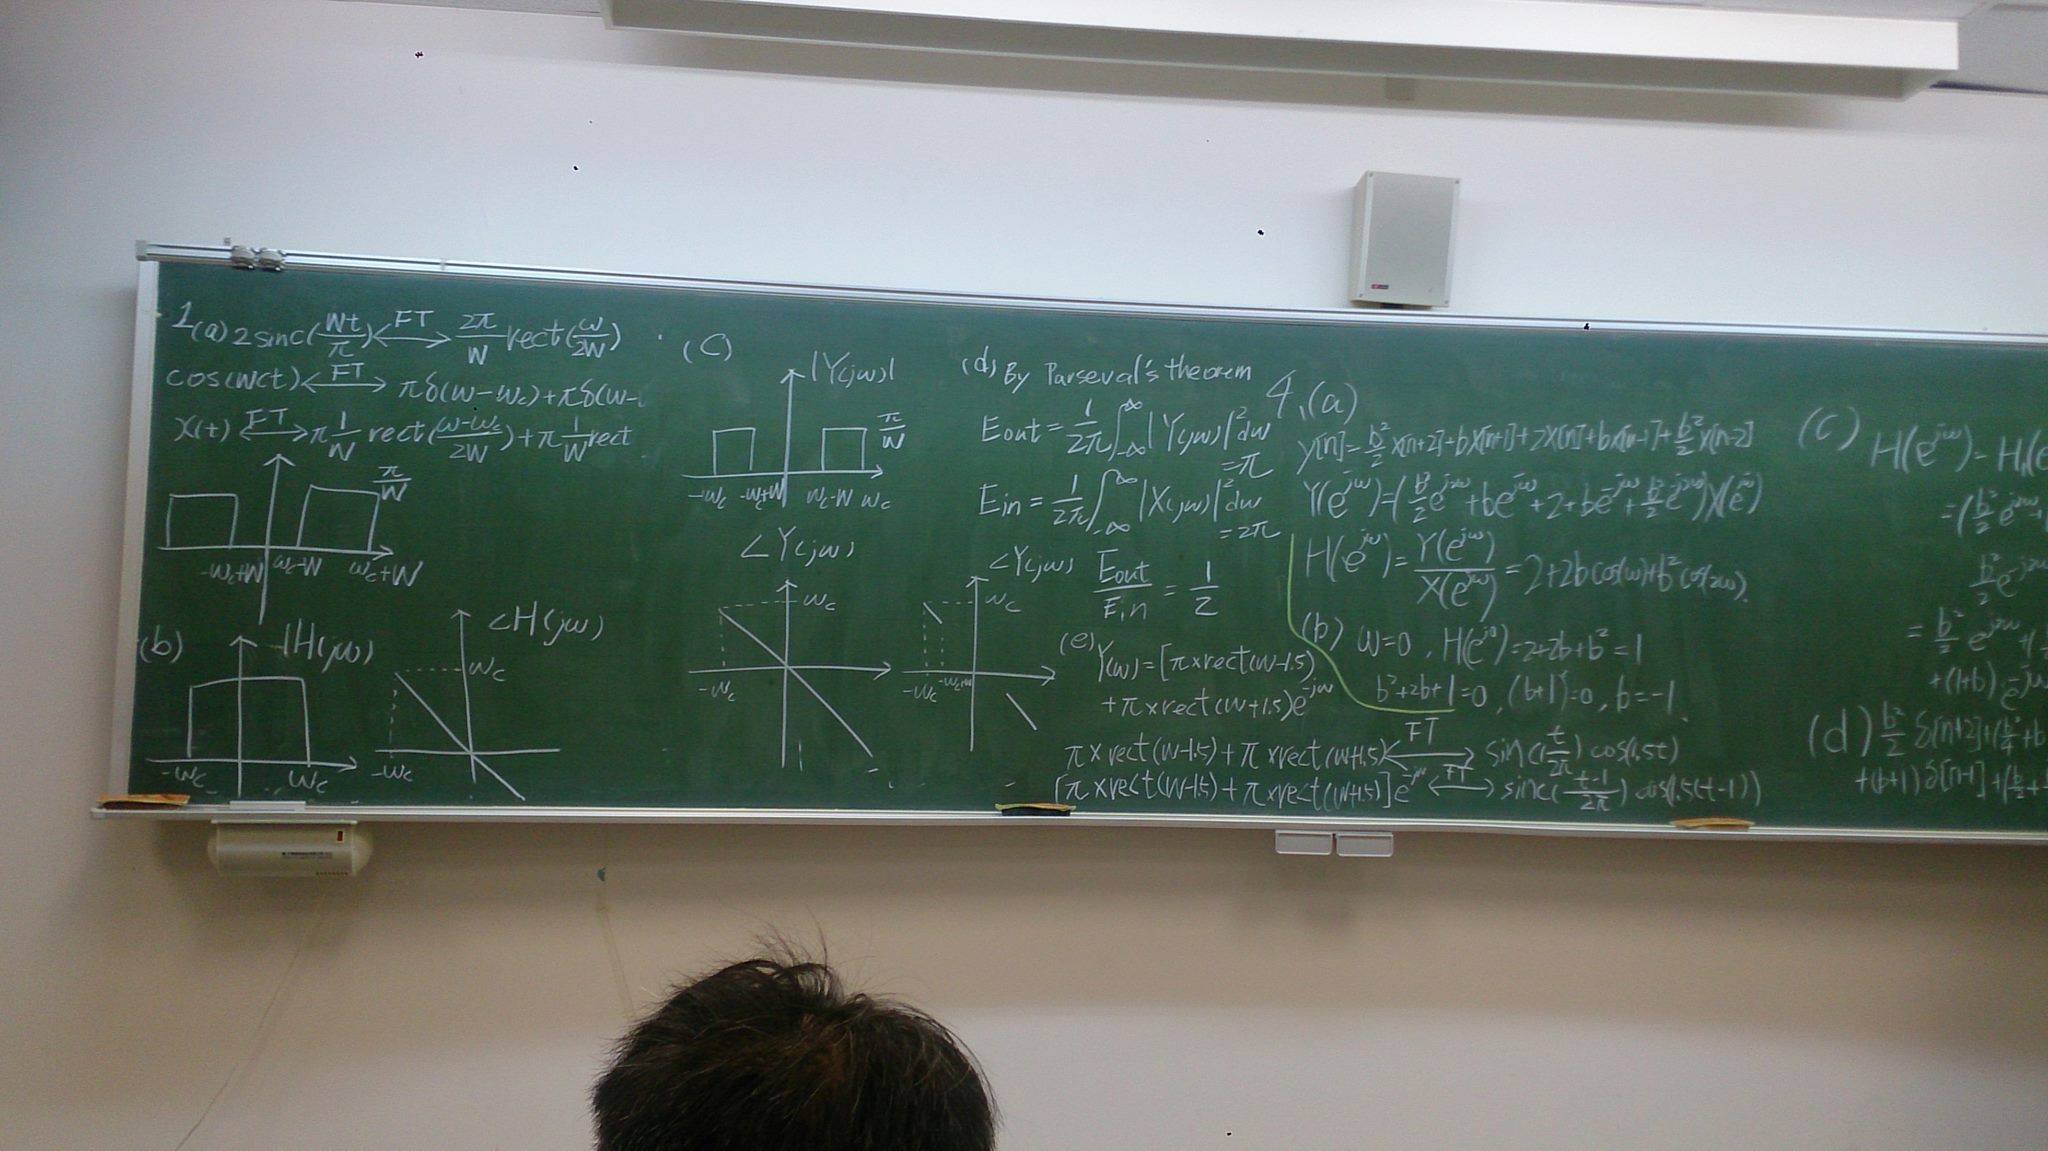 1(a) 2sinc(Wt/π) ←FT→ 2π/W rect(ω/2W)
cos(wct) ←FT→ πδ(w-wc)+πδ(w-
X(t) ←FT→ π 1/W rect(ω-ωc/2W)+π 1/W rect
π/W
-wc+W wc-W wc+W
(b) |H(jω)|
-wc wc
∠H(jω)
wc
-wc
(C)
|Y(jω)|
π/W
-wc -wc+W wc-W wc
∠Y(jω)
wc
-wc
∠Y(jω)
wc
-wc -wc+W
(d) By Parseval's theorem
Eout = 1/2π ∫_-∞^∞ |Y(jω)|² dω
= π
Ein = 1/2π ∫_-∞^∞ |X(jω)|² dω
= 2π
Eout/Ein = 1/2
(e)
Y(w) = [π×rect(w-1.5)
+π×rect(w+1.5)e^-jw
π×rect(w-1.5)+π×rect(w+1.5) ←FT→ sinc(t/2π) cos(1.5t)
[π×rect(w-1.5)+π×rect(w+1.5)]e^-jw ←FT→ sinc(t-1/2π) cos(1.5(t-1))
4.(a)
y[n]= b²/2 x[n+2]+bx[n+1]+2x[n]+bx[n-1]+b²/2 x[n-2]
Y(e^jω)=(b²/2 e^j2ω+be^jω+2+be^-jω+b²/2 e^-j2ω)X(e^jω)
H(e^jω)=Y(e^jω)/X(e^jω)=2+2bcos(ω)+b²cos(2ω).
(b) w=0, H(e^j0)=2+2b+b²=1
b²+2b+1=0, (b+1)²=0, b=-1
(c) H(e^jω)=H1(e
=(b²/2 e^j2ω+
b²/2 e^-j2ω
= b²/2 e^j2ω
+(1+b)e^-jω
(d) b²/2 δ[n+2]+(
+(b+1)δ[n-1]+(